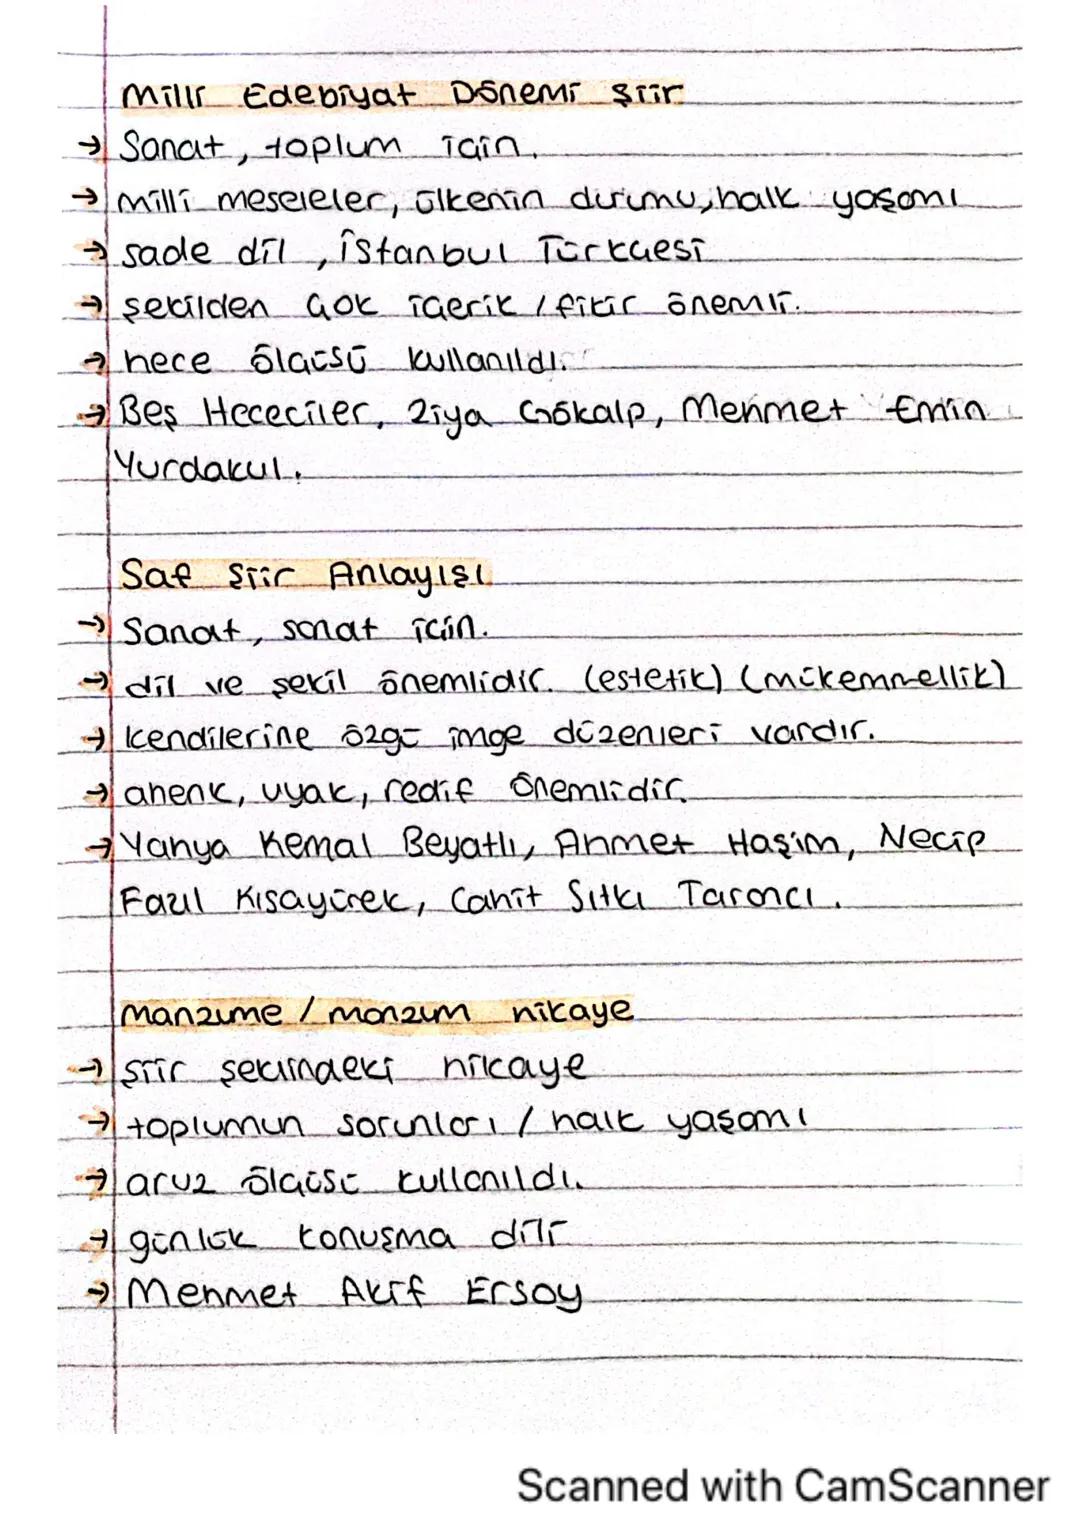 Milli Edebiyat Dönemi Şiir
→ Sanat, toplum için.
→ milli meseleler, ülkenin durumu, halk yaşamı
→ sade dil, İstanbul Türkçesi
→ şekilden çok içerik / fikir önemli.
→ hece ölçüsü kullanıldı.
→ Beş Hececiler, Ziya Gökalp, Mehmet Emin
Yurdakul.
Saf Şiir Anlayışı
→ Sanat, sanat için.
→ dil ve şekil önemlidir. (estetik) (mükemmellik)
→ kendilerine özgü imge düzenleri vardır.
→ ahenk, uyak, redif önemlidir.
→ Yahya Kemal Beyatlı, Ahmet Haşim, Necip
Fazıl Kısayürek, Cahit Sıtkı Tarancı.
manzume / manzum hikaye
→ şiir şeklindeki hikaye
→ toplumun sorunları / halk yaşamı
→ aruz ölçüsü kullanıldı.
→ günlük konuşma dili
→ Mehmet Akif Ersoy
Scanned with CamScanner